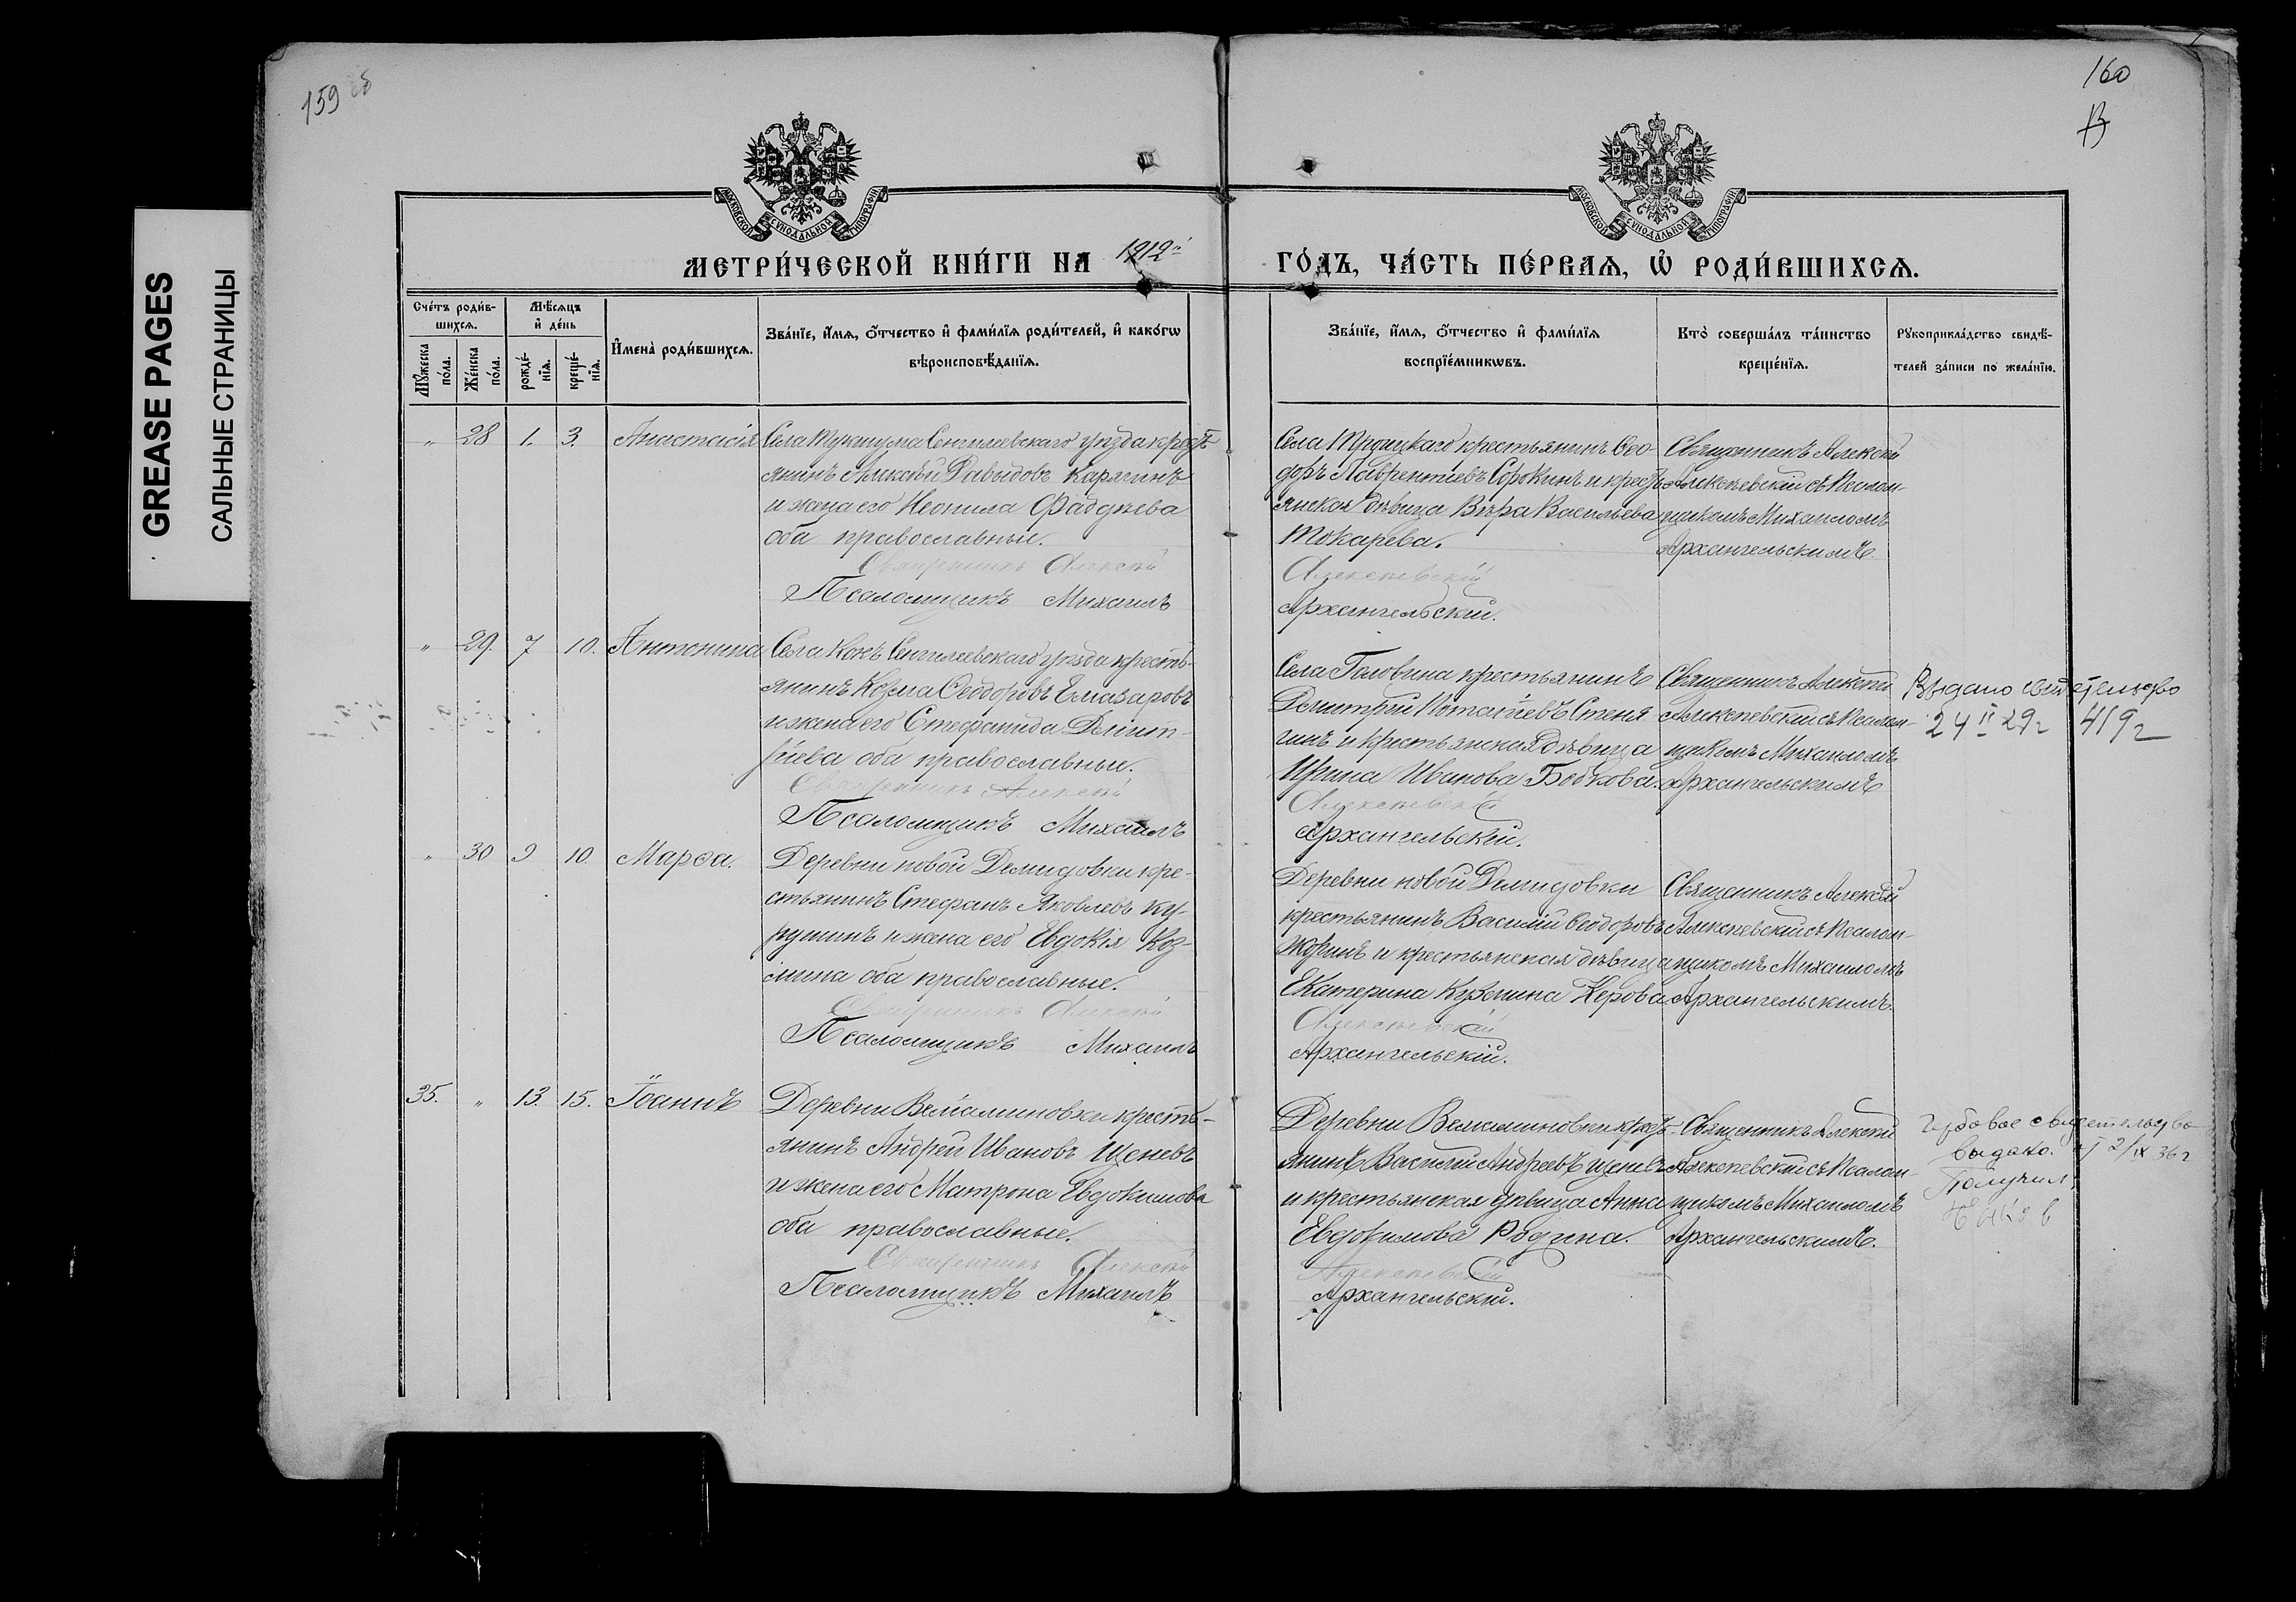 159 об
160
В
GREASE PAGES
САЛЬНЫЕ СТРАНИЦЫ
МОСКОВСКОЙ СѴНОДАЛЬНОЙ ТИПОГРАФІИ
МОСКОВСКОЙ СѴНОДАЛЬНОЙ ТИПОГРАФІИ
МЕТРИ́ЧЕСКОЙ КНИ́ГИ НА 1912й ГО́ДЪ, ЧА́СТЬ ПЕ́РВАЯ, Ѡ РОДИ́ВШИХСЯ.
Сче́тъ роди́в-
шихся.
Мꙋ́жеска по́ла.
Же́нска по́ла.
Мѣ́сяцъ
и҆ де́нь
рожде́-
нїя.
креще́-
нїя.
И҆мена̀ роди́вшихся.
Зва́нїе, и҆́мя, ѻ҆́тчество и҆ фами́лїя роди́телей, и҆ како́гѡ
вѣроисповѣ́данїя.
Зва́нїе, и҆́мя, ѻ҆́тчество и҆ фами́лїя
воспрїе́мникѡвъ.
Кто̀ соверша́лъ та́инство
креще́нїя.
Рꙋкоприкла́дство свидѣ́-
телей за́писи по жела́нїю.
" 28 1. 3. Анастасія
Села Тукшума Сенгилеевскаго уѣзда крестъ-
янинъ Алексѣй Давыдовъ Карягинъ
и жена его Неонила Фаддѣева
оба православные.
Священникъ Алексѣй
Псаломщикъ Михаилъ
Села Троицкаго крестьянинъ Ѳео-
доръ Лаврентіевъ Сорокинъ и кресть-
янская дѣвица Вѣра Васильева
Токарева.
Алексѣевскій
Архангельскій.
Священникъ Алексѣй
Алексѣевскій съ Псалом-
щикомъ Михаиломъ
Архангельскимъ.
" 29. 7 10. Антонина
Села Кокъ Сенгилеевскаго уѣзда кресть-
янинъ Козма Ѳеодоровъ Елизаровъ
и жена его Стефанида Димит-
ріева оба православные.
Священникъ Алексѣй
Псаломщикъ Михаилъ
Села Головина крестьянинъ
Димитрій Потапіевъ Стеня-
гинъ и крестьянская дѣвица
Ирина Иванова Бобкова.
Алексѣевскій
Архангельскій.
Священникъ Алексѣй
Алексѣевскій съ Псалом-
щикомъ Михаиломъ
Архангельскимъ
Выдано свидетельство
24 II 29г 419г
" 30 9 10. Марѳа.
Деревни новой Демидовки кре-
стьянинъ Стефанъ Яковлевъ Ку-
рушинъ и жена его Евдокія Коз-
мина оба православные.
Священникъ Алексѣй
Псаломщикъ Михаилъ
Деревни новой Демидовки
крестьянинъ Василій Ѳеодоровъ
Жоринъ и крестьянская дѣвица
Екатерина Кузьмина Керова
Алексѣевскій
Архангельскій.
Священникъ Алексѣй
Алексѣевскій съ Псалом-
щикомъ Михаиломъ
Архангельскимъ.
35. " 13. 15. Іоаннъ
Деревни Веніаминовки кресть-
янинъ Андрей Ивановъ Щеневъ
и жена его Матрона Евдокимова
оба православные.
Священникъ Алексѣй
Псаломщикъ Михаилъ
Деревни Веніаминовки кресть-
янинъ Василій Андреевъ Щеневъ
и крестьянская дѣвица Анна
Евдокимова Родина.
Алексѣевскій
Архангельскій.
Священникъ Алексѣй
Алексѣевскій съ Псалом-
щикомъ Михаиломъ
Архангельскимъ.
Гербовое свидетельство
выдано. 2/IX 36г
Получил